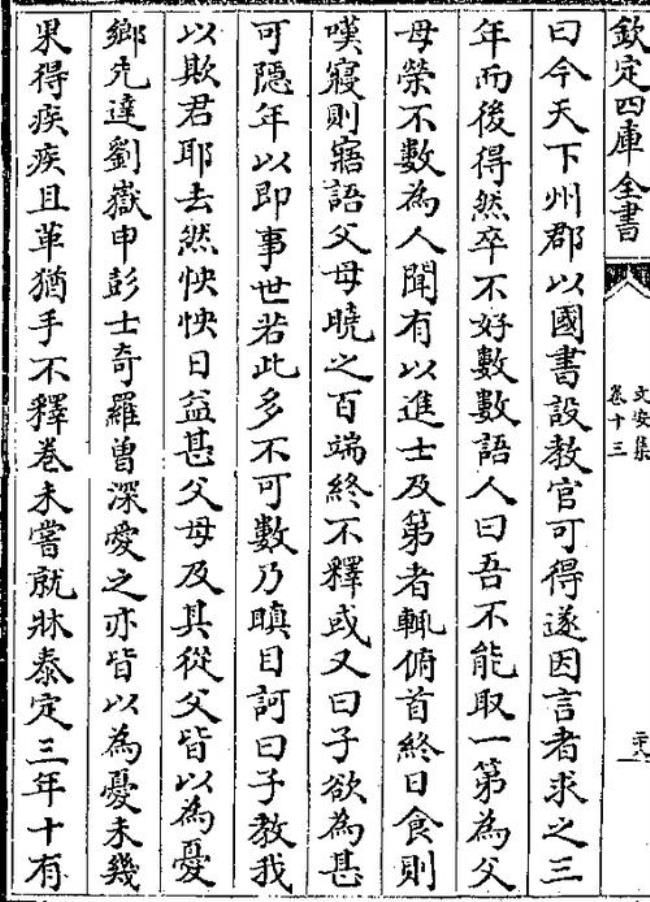 欽定四庫全書
文安集
卷十三
二十八
曰今天下州郡以國書設教官可得遂因言者求之三
年而後得然卒不好數數語人曰吾不能取一第為父
母榮不數為人聞有以進士及第者輒俯首終日食則
嘆寢則寤語父母曉之百端終不釋或又曰子欲為甚
可隱年以即事世若此多不可數乃瞋目訶曰子教我
以欺君耶去然怏怏日益甚父母及其從父皆以為憂
鄉先達劉嶽申彭士奇羅曽深愛之亦皆以為憂未幾
果得疾疾且革猶手不釋巻未嘗就牀泰定三年十有